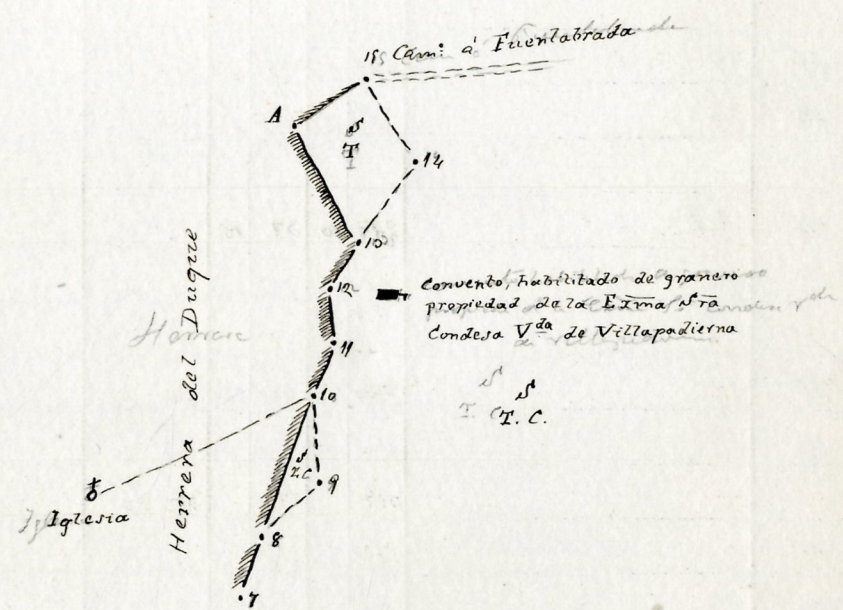 15 Cam: á Fuenlabrada
A
S
T
14
10
12
Convento habilitado de granero
propiedad de la Exma Sra
Condesa Vda de Villapadierna
Herrera del Duque
11
10
S
T. C.
S
9
Iglesia
8
7